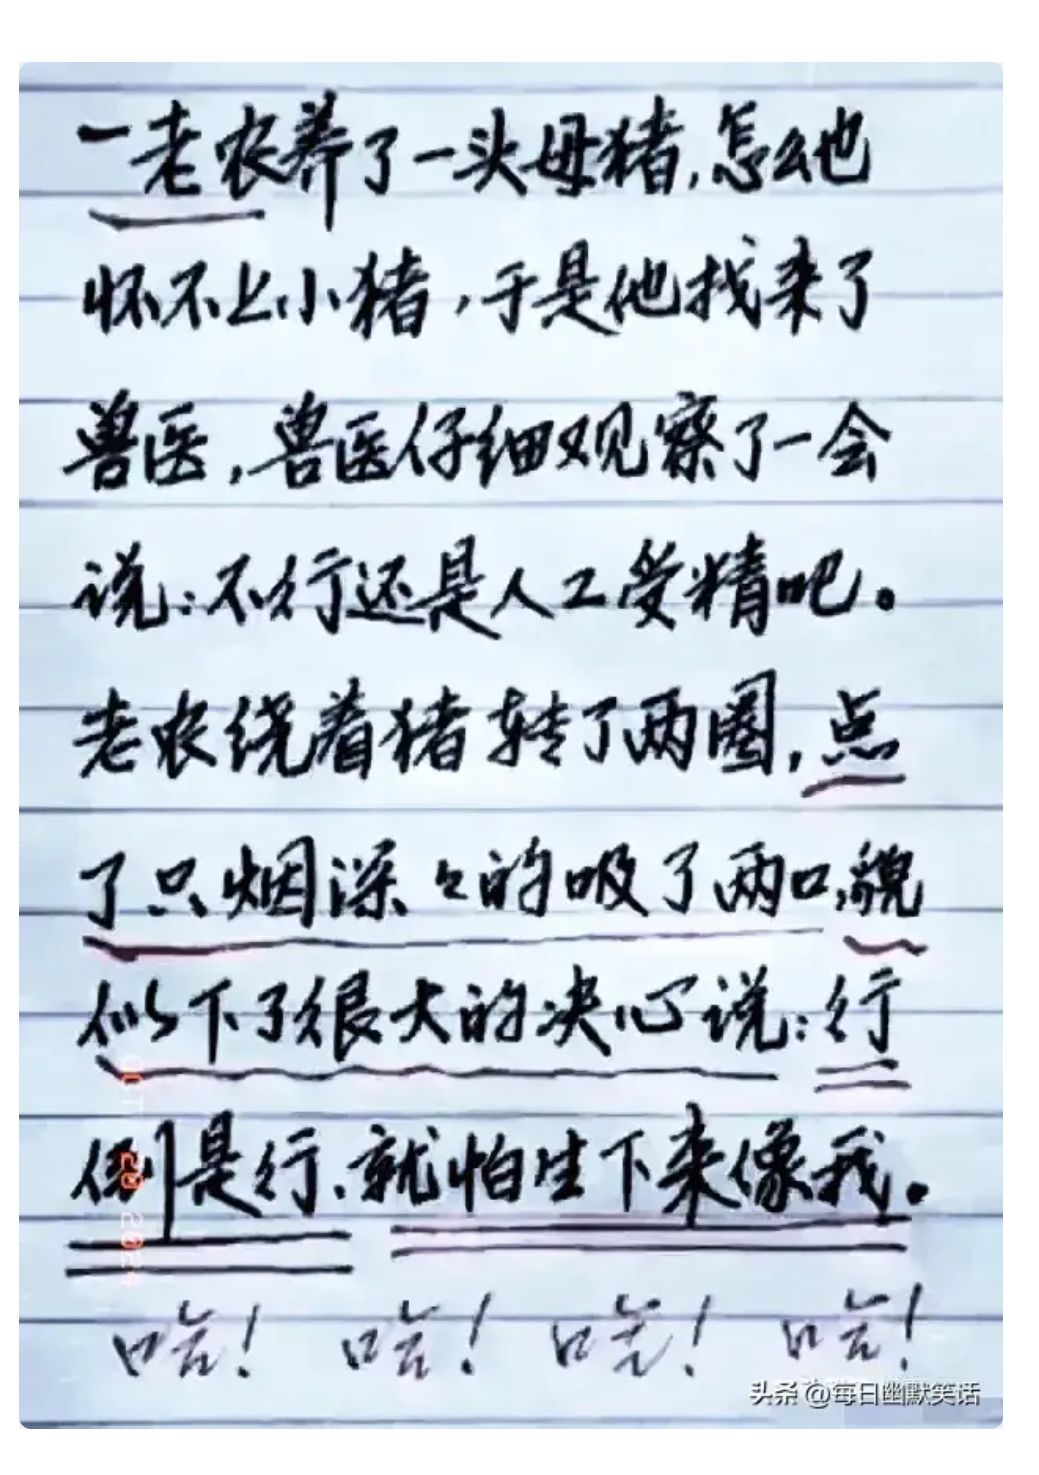 一老农养了一头母猪,怎么也
怀不上小猪,于是他找来了
兽医,兽医仔细观察了一会
说:不行还是人工受精吧。
老农绕着猪转了两圈,点
了只烟深々的吸了两口,貌
似下了很大的决心说:行
倒是行、就怕生下来像我。
哈! 哈! 哈! 哈!
头条 @每日幽默笑话